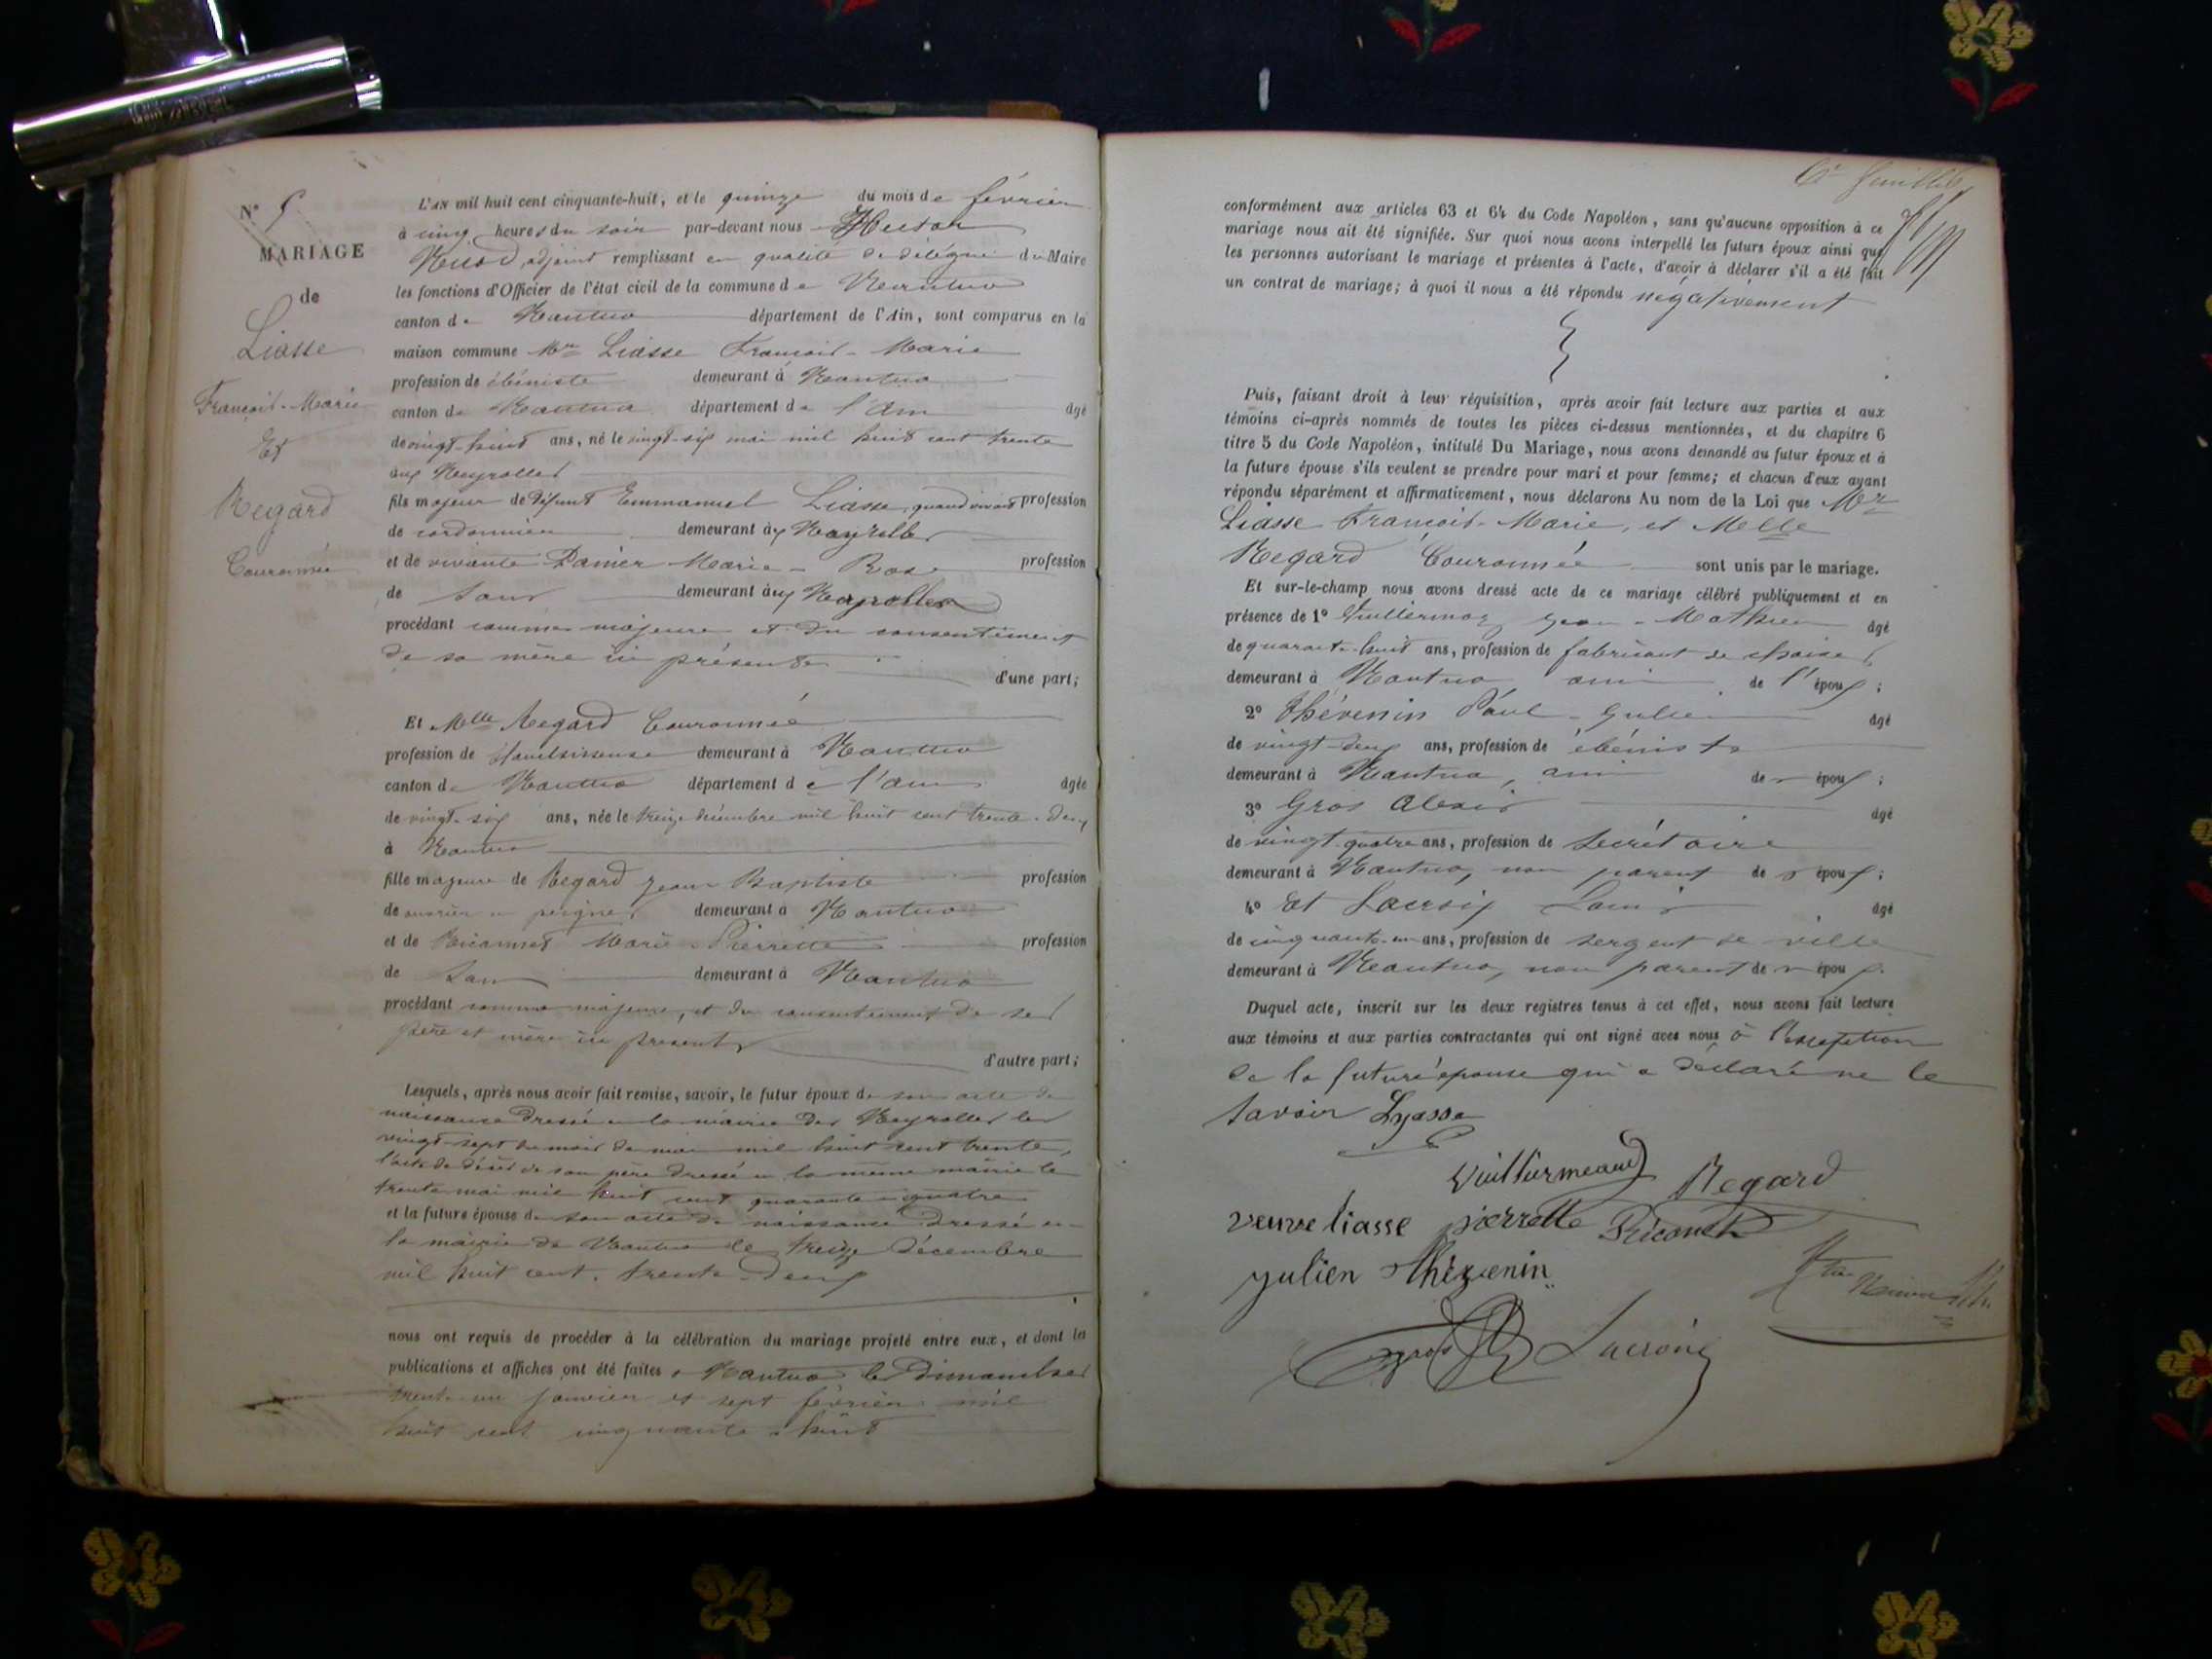 N° 5
MARIAGE
de
Liasse
François-Marie
Et
Regard
Couronnée
L'AN mil huit cent cinquante-huit, et le quinze du mois de février
à cinq heures du soir par-devant nous Hector
adjoint remplissant en qualité de délégué du Maire
les fonctions d'Officier de l'état civil de la commune de Nantua
canton de Nantua département de l'Ain, sont comparus en la
maison commune Mr Liasse François-Marie
profession de ébéniste demeurant à Nantua
canton de Nantua département de l'Ain âgé
de vingt-huit ans, né le vingt-six mai mil huit cent trente
aux Neyrolles
fils majeur de défunt Emmanuel Liasse, quand vivait profession
de cordonnier demeurant aux Neyrolles
et de vivante Panier Marie-Rose profession
de sans demeurant aux Neyrolles
procédant comme majeur et du consentement
de sa mère ici présente
d'une part;
Et Melle Regard Couronnée
profession de demeurant à Nantua
canton de Nantua département de l'Ain âgée
de vingt-six ans, née le treize décembre mil huit cent trente-deux
à Nantua
fille majeure de Regard Jean-Baptiste profession
de ouvrier en peignes demeurant à Nantua
et de Marie-Pierrette profession
de sans demeurant à Nantua
procédant comme majeure, et du consentement de ses
père et mère ici présents
d'autre part;
Lesquels, après nous avoir fait remise, savoir, le futur époux de son acte de
naissance dressé en la mairie des Neyrolles le
vingt-sept du mois de mai mil huit cent trente,
l'acte de décès de son père dressé en la même mairie le
trente mai mil huit cent quarante-quatre
et la future épouse de son acte de naissance dressé en
la mairie de Nantua le treize décembre
mil huit cent trente-deux
nous ont requis de procéder à la célébration du mariage projeté entre eux, et dont les
publications et affiches ont été faites à Nantua les Dimanches
trente un janvier et sept février mil
huit cent cinquante-huit
conformément aux articles 63 et 64 du Code Napoléon, sans qu'aucune opposition à ce
mariage nous ait été signifiée. Sur quoi nous avons interpellé les futurs époux ainsi que
les personnes autorisant le mariage et présentes à l'acte, d'avoir à déclarer s'il a été fait
un contrat de mariage; à quoi il nous a été répondu négativement
Puis, faisant droit à leur réquisition, après avoir fait lecture aux parties et aux
témoins ci-après nommés de toutes les pièces ci-dessus mentionnées, et du chapitre 6
titre 5 du Code Napoléon, intitulé Du Mariage, nous avons demandé au futur époux et à
la future épouse s'ils veulent se prendre pour mari et pour femme; et chacun d'eux ayant
répondu séparément et affirmativement, nous déclarons Au nom de la Loi que Mr
Liasse François-Marie, et Melle
Regard Couronnée sont unis par le mariage.
Et sur-le-champ nous avons dressé acte de ce mariage célébré publiquement et en
présence de 1° Vuillermoz Jean-Mathieu âgé
de quarante-huit ans, profession de fabricant de chaises
demeurant à Nantua ami de l'époux;
2° Thévenin Paul-Julien âgé
de vingt-deux ans, profession de ébéniste
demeurant à Nantua, ami de époux;
3° Gros Alexis âgé
de vingt-quatre ans, profession de secrétaire
demeurant à Nantua, non parent de époux;
4° Et Lacroix Louis âgé
de cinquante-un ans, profession de sergent de ville
demeurant à Nantua, non parent de époux.
Duquel acte, inscrit sur les deux registres tenus à cet effet, nous avons fait lecture
aux témoins et aux parties contractantes qui ont signé avec nous à l'exception
de la future épouse qui a déclaré ne le
savoir Lyasse
Regard
veuve liasse pierrette
julien
gros Lacroix